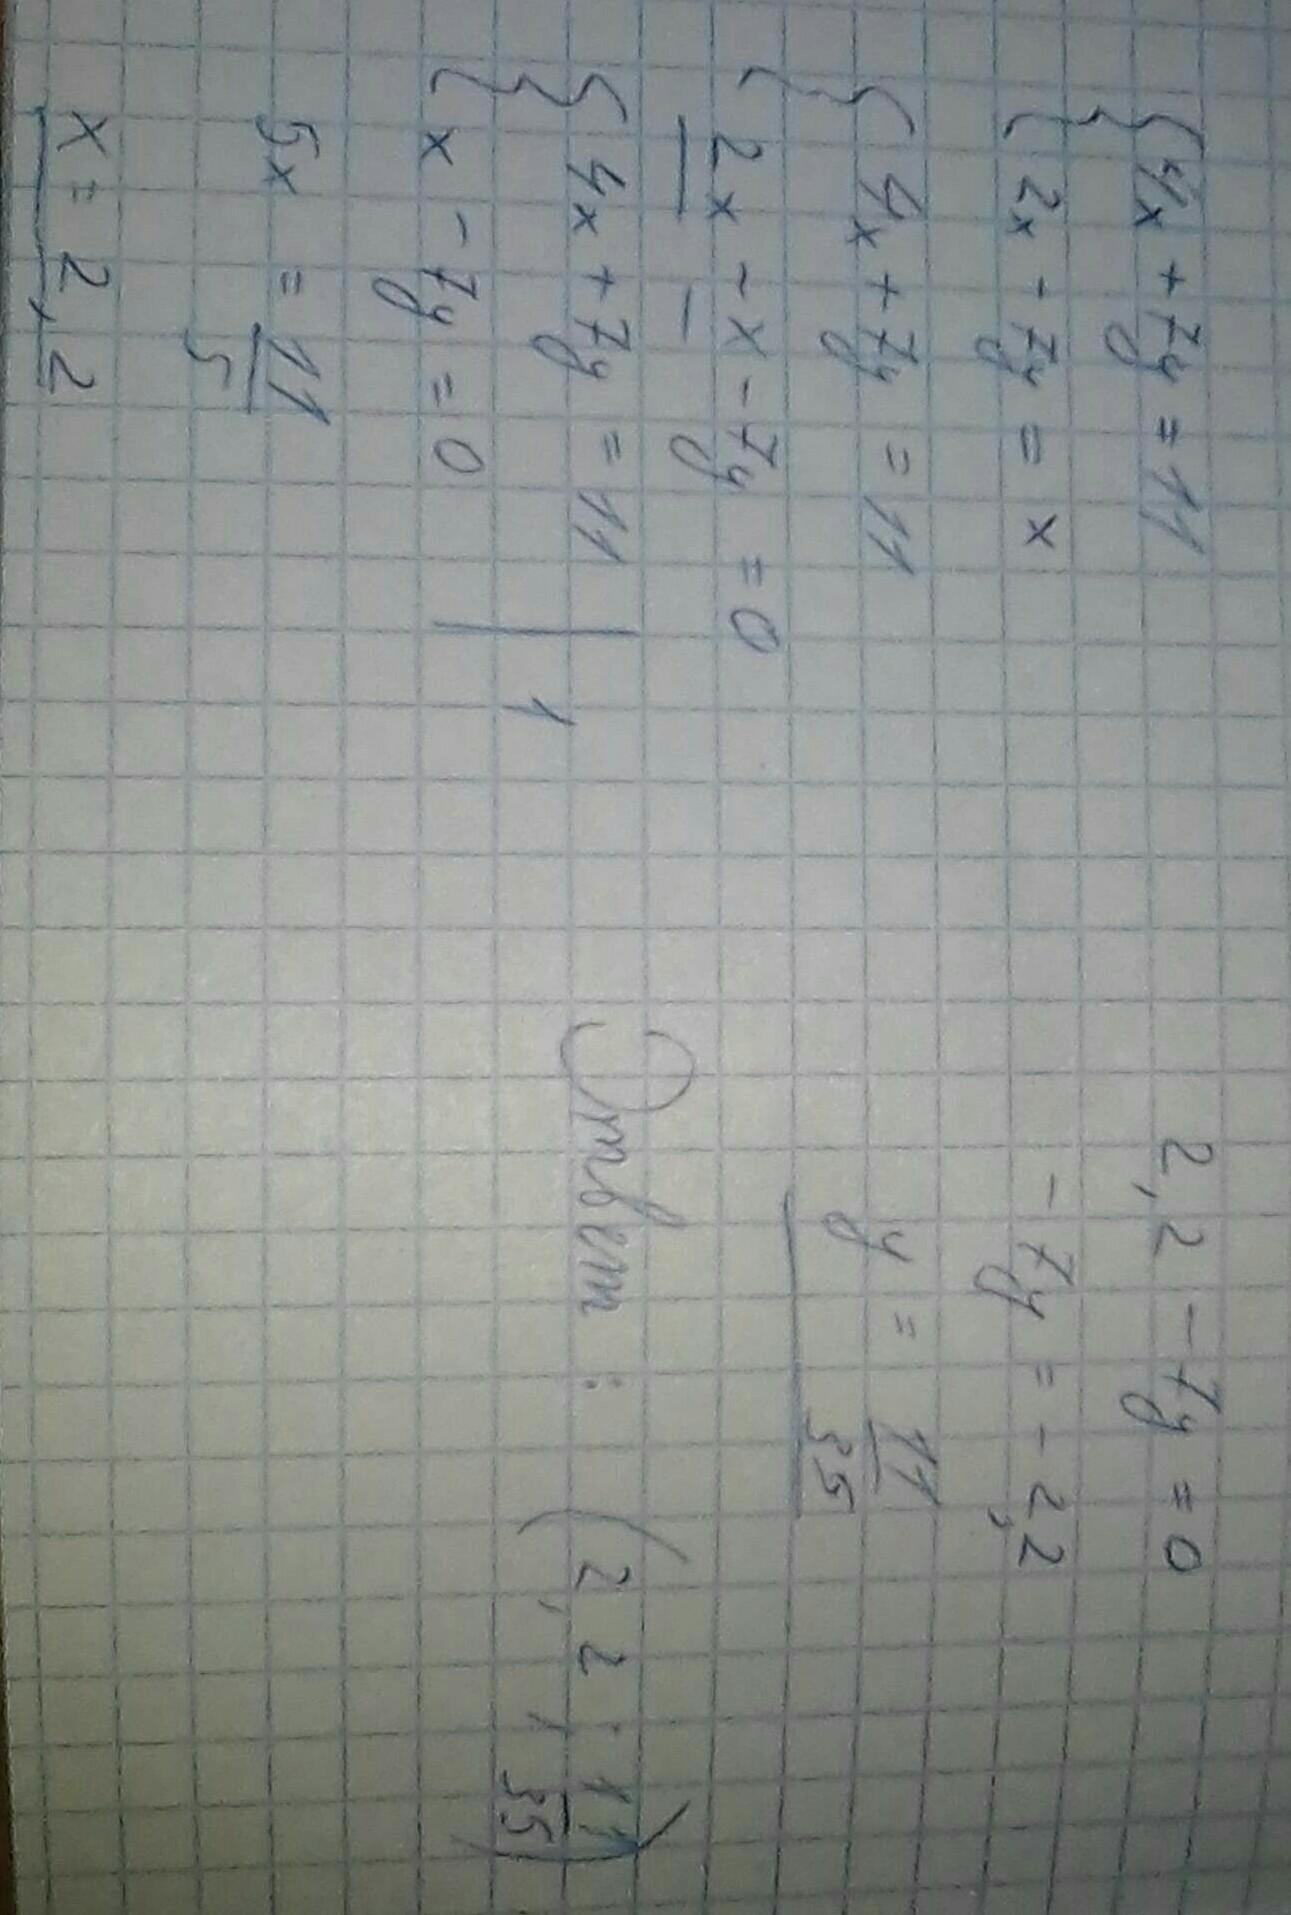 { 4x + 7y = 11
2x - 7y = x
{ 4x + 7y = 11
2x - x - 7y = 0
{ 4x + 7y = 11 | 1
x - 7y = 0
5x = 11/5
x = 2,2
2,2 - 7y = 0
- 7y = - 2,2
y = 11/35
Ответ: (2,2; 11/35)